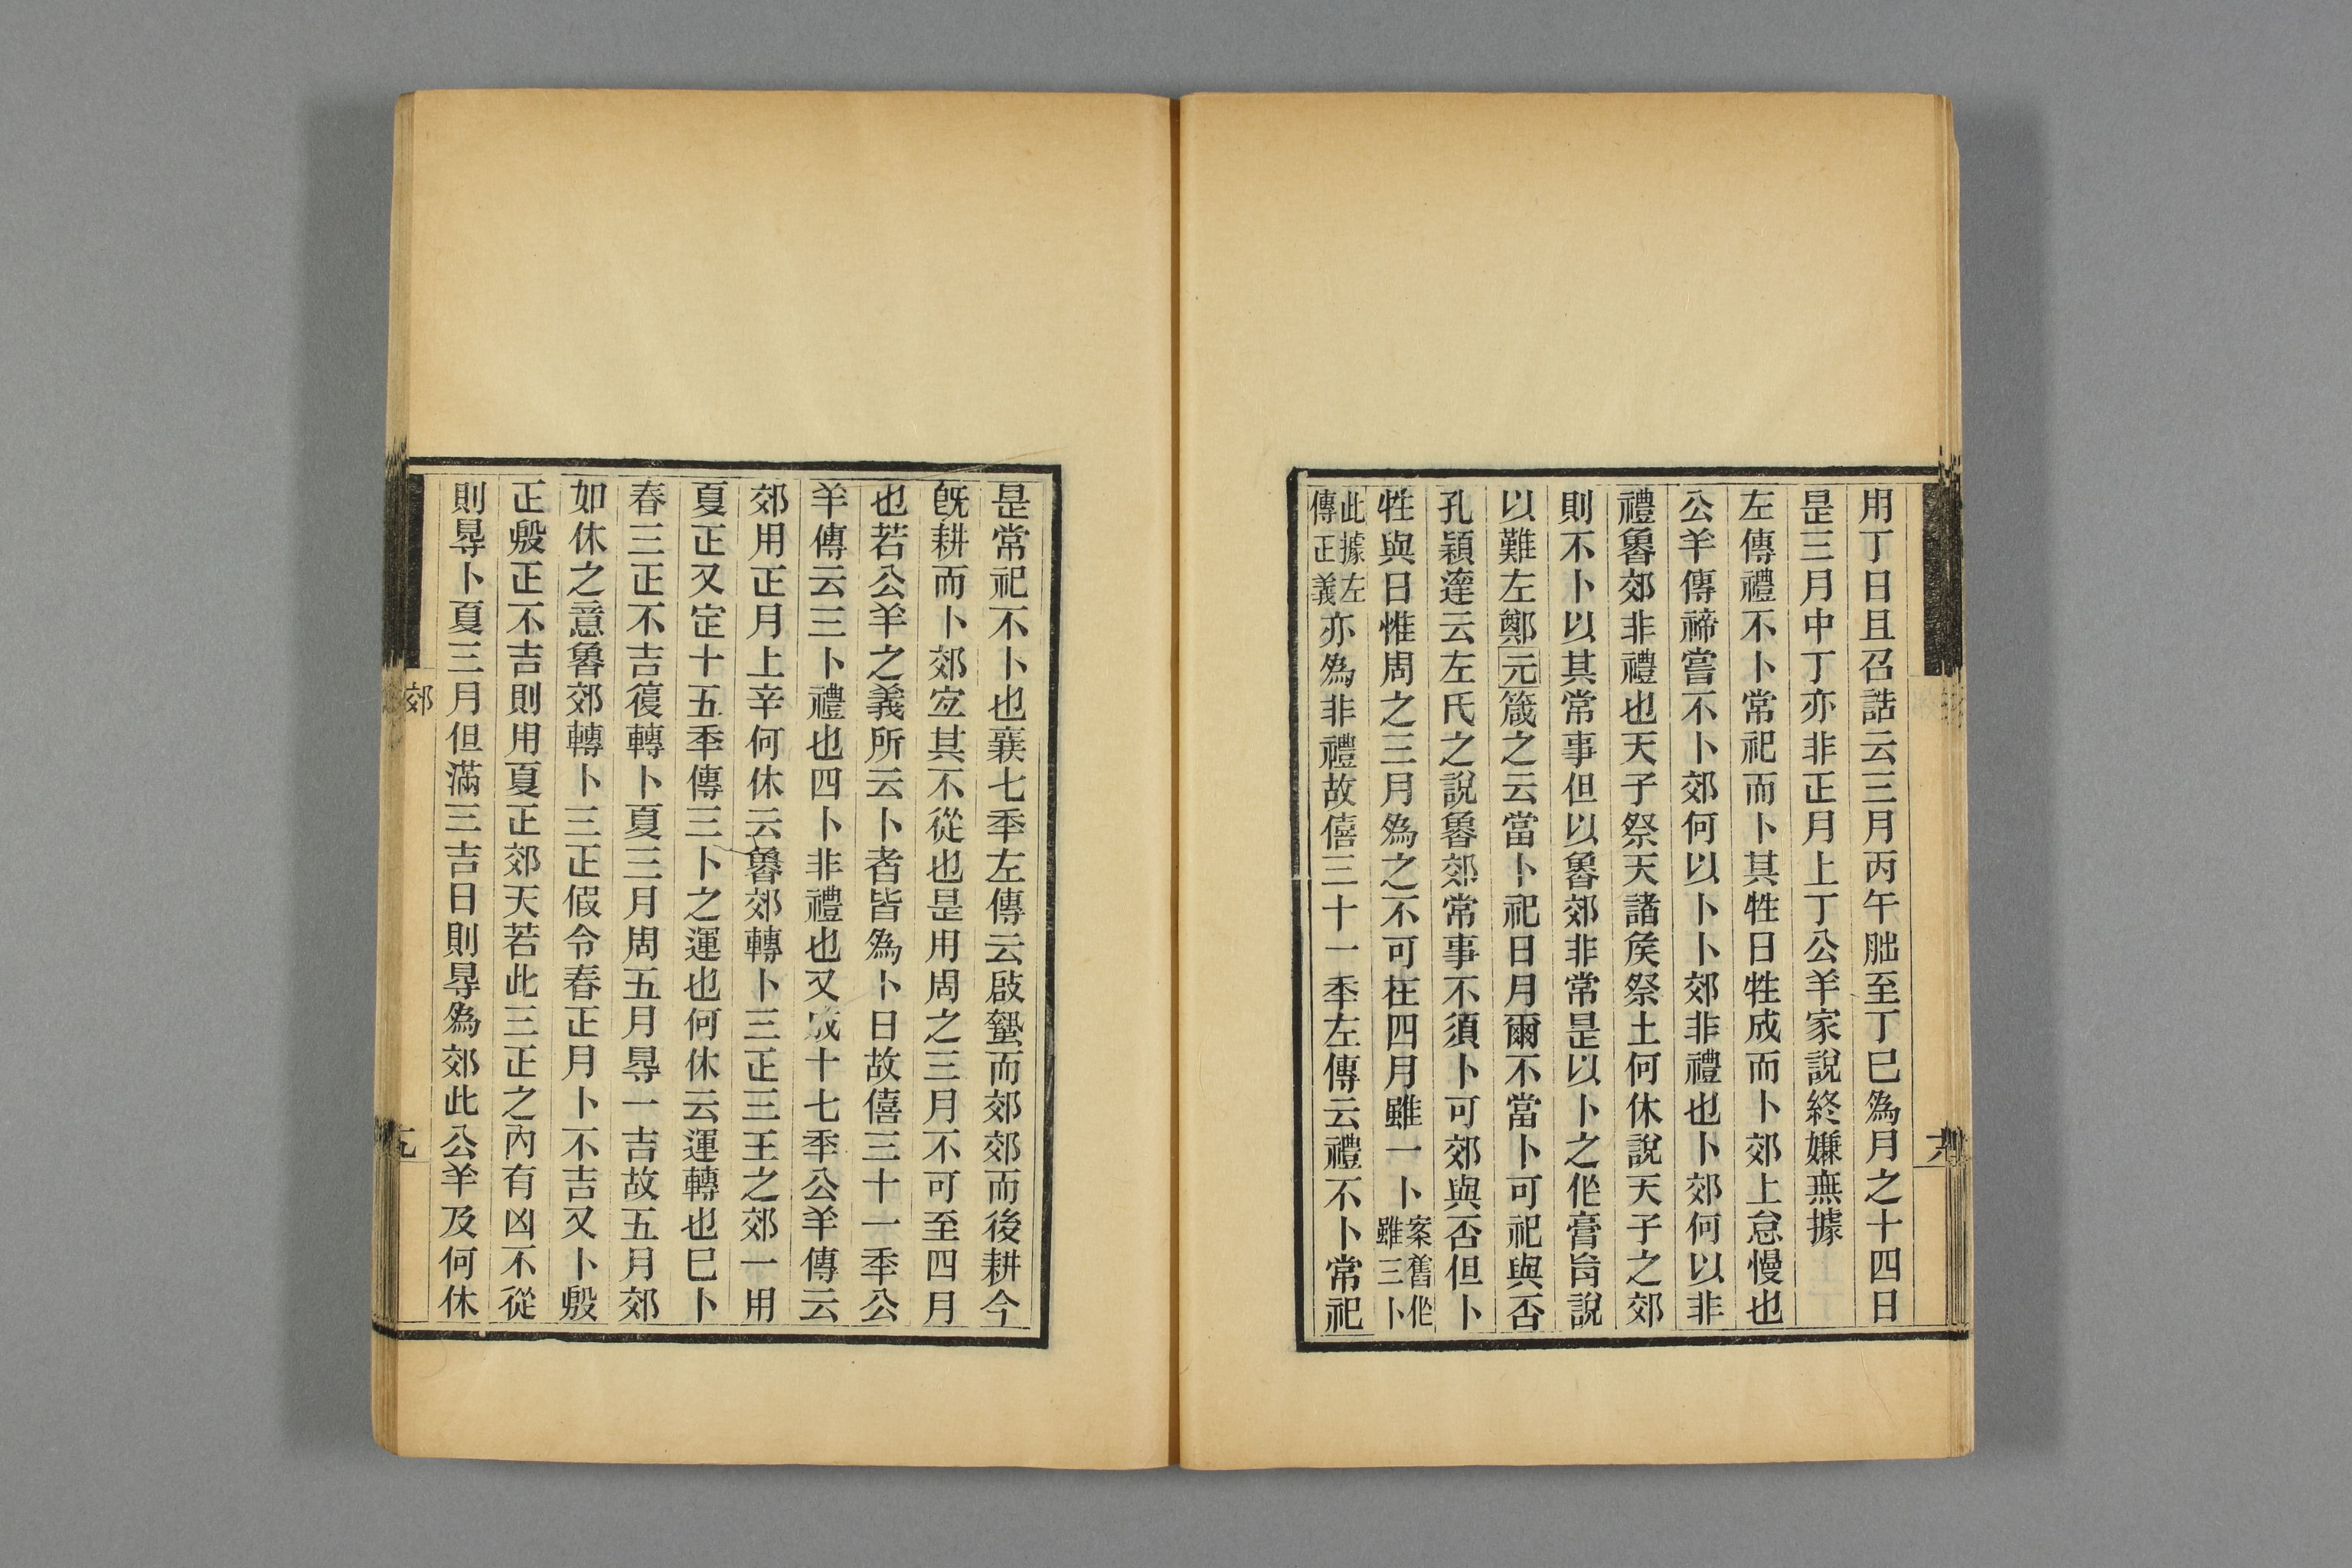 用丁日且召誥云三月丙午朏至丁巳爲月之十四日
是三月中丁亦非正月上丁公羊家說終嫌無據
左傳禮不卜常祀而卜其牲日牲成而卜郊上怠慢也
公羊傳禘嘗不卜郊何以卜卜郊非禮也卜郊何以非
禮魯郊非禮也天子祭天諸矦祭土何休說天子之郊
則不卜以其常事但以魯郊非常是以卜之作膏肓說
以難左鄭元箴之云當卜祀日月爾不當卜可祀與否
孔穎達云左氏之說魯郊常事不須卜可郊與否但卜
牲與日惟周之三月爲之不可在四月雖一卜案舊作雖三卜
此據左傳正義亦爲非禮故僖三十一秊左傳云禮不卜常祀
是常祀不卜也襄七秊左傳云啟蟄而郊郊而後耕今
旣耕而卜郊宐其不從也是用周之三月不可至四月
也若公羊之義所云卜者皆爲卜日故僖三十一秊公
羊傳云三卜禮也四卜非禮也又成十七秊公羊傳云
郊用正月上辛何休云魯郊轉卜三正三王之郊一用
夏正又定十五秊傳三卜之運也何休云運轉也巳卜
春三正不吉復轉卜夏三月周五月㝵一吉故五月郊
如休之意魯郊轉卜三正假令春正月卜不吉又卜殷
正殷正不吉則用夏正郊天若此三正之內有凶不從
則㝵卜夏三月但滿三吉日則㝵爲郊此公羊及何休
郊